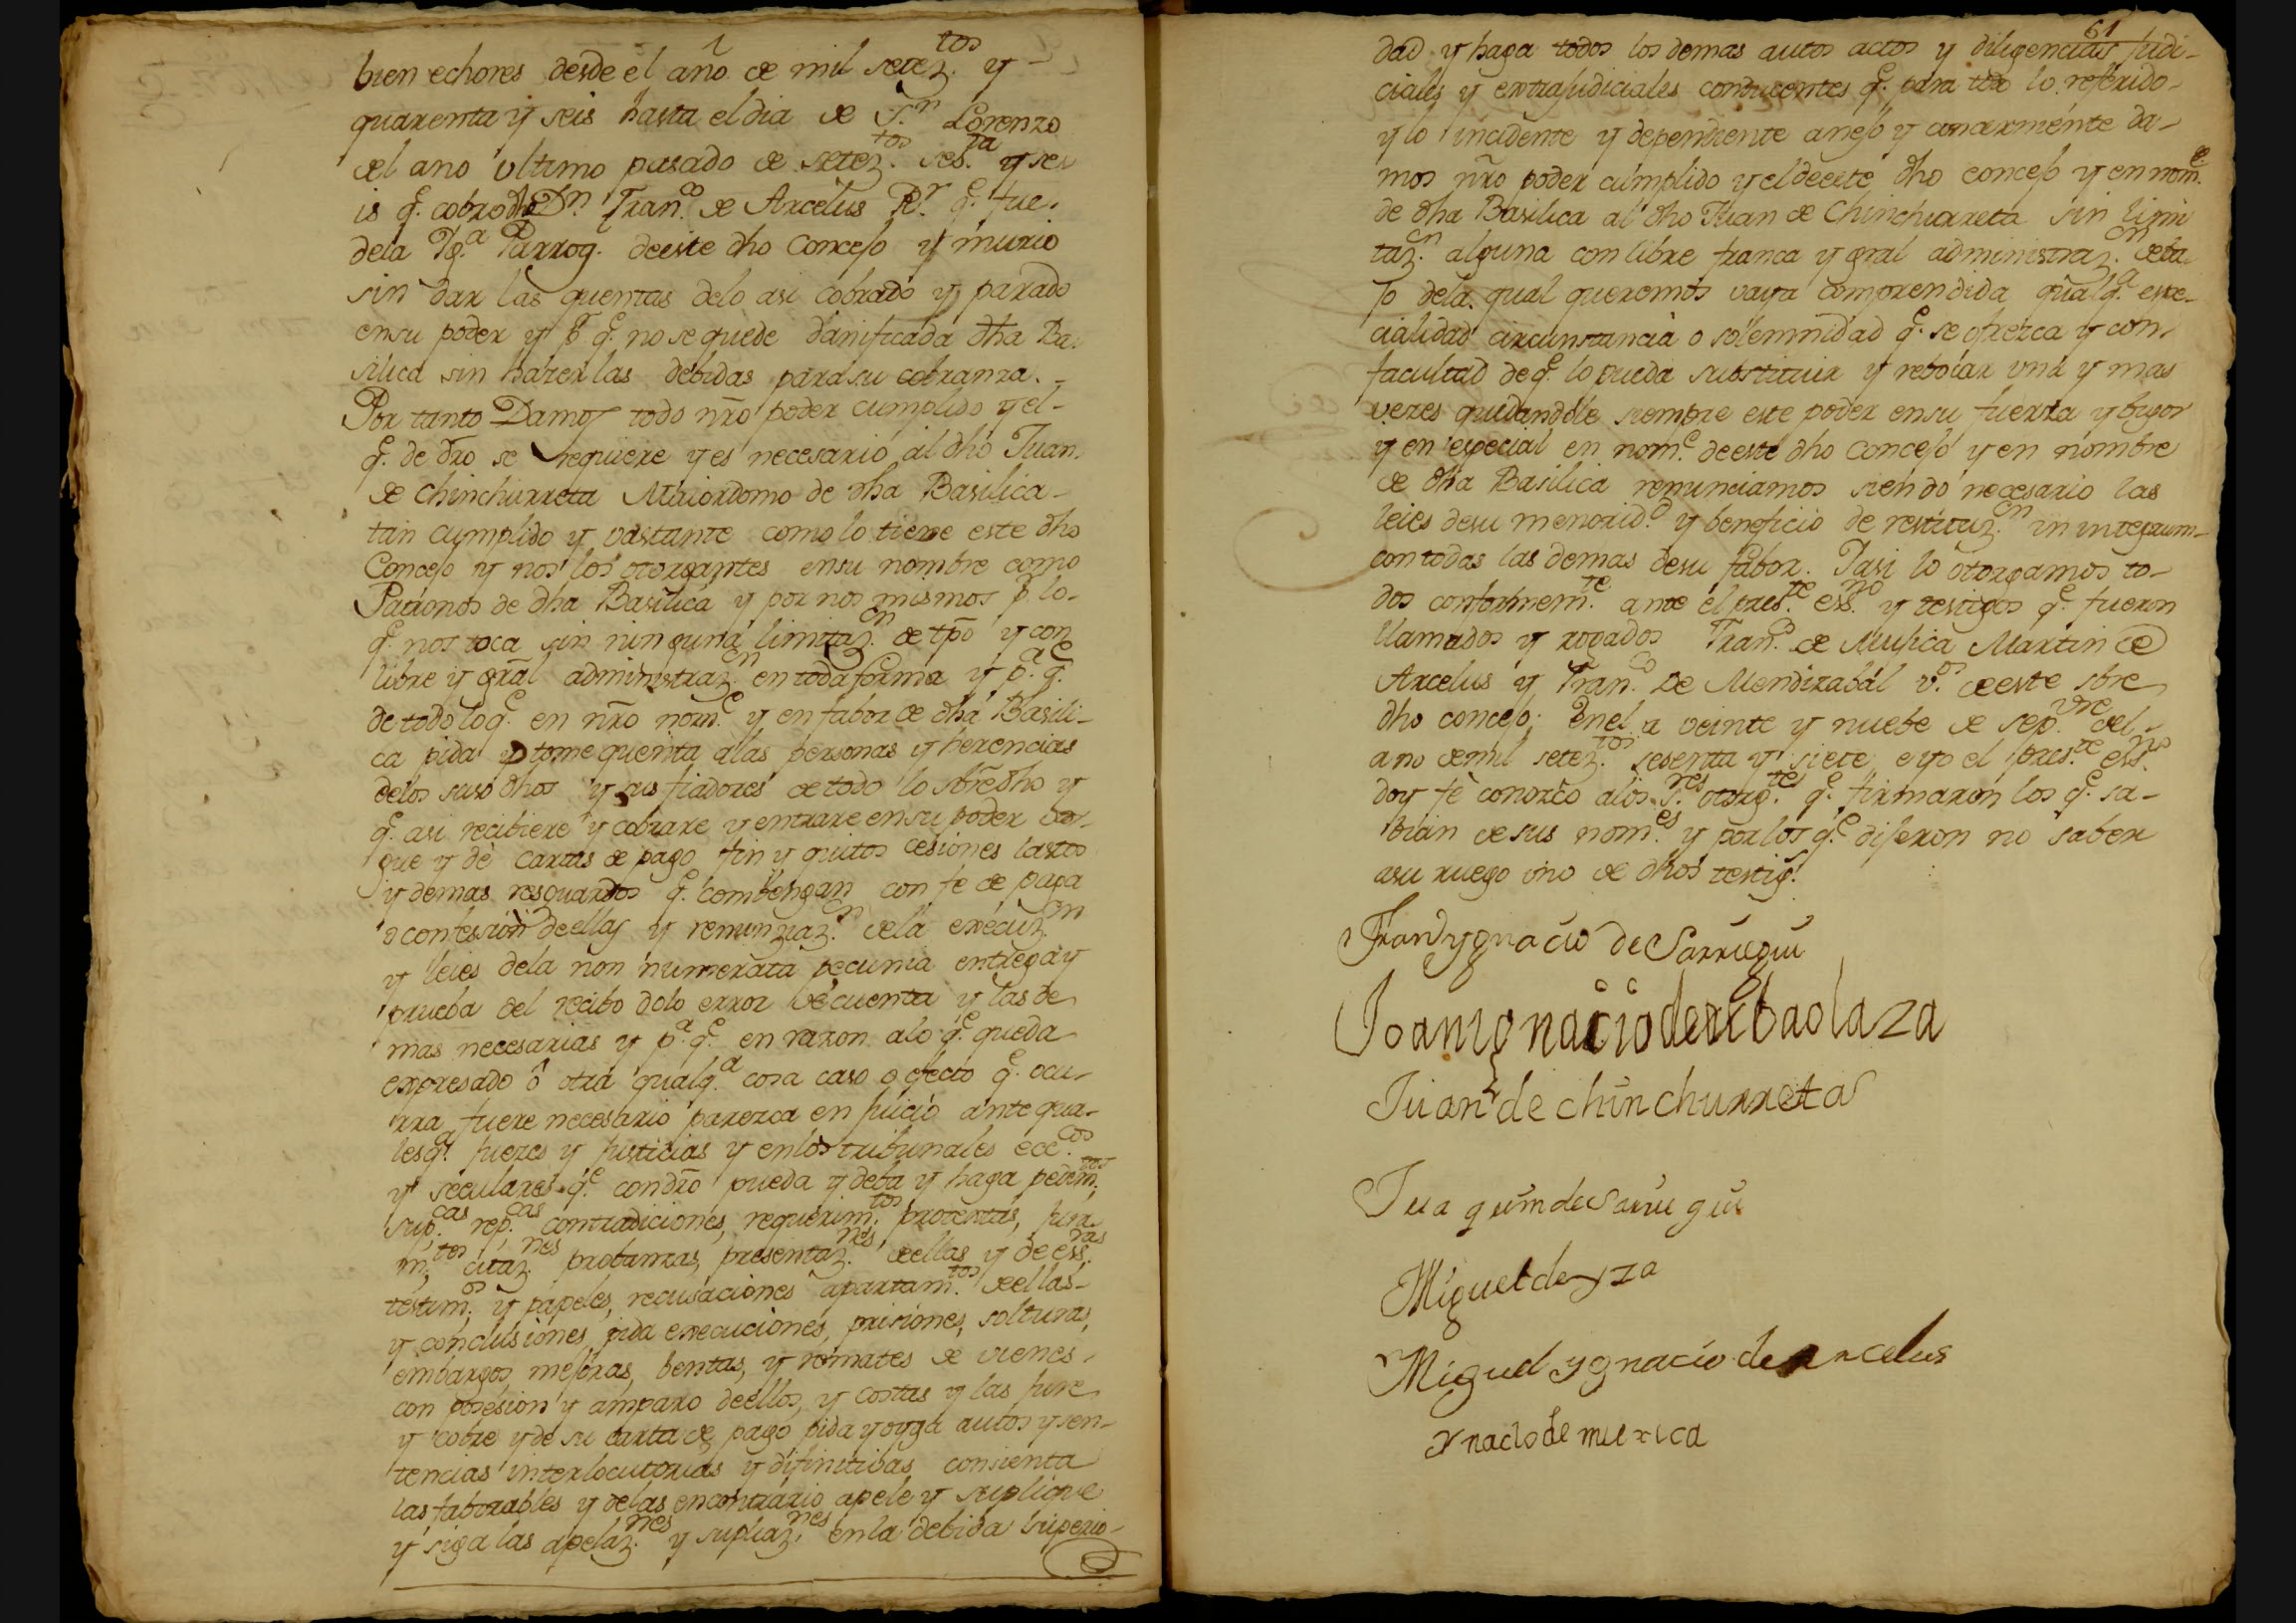 bien echores desde el año de mil setez.tos y
quarenta y seis hasta el dia de S.n Lorenzo
del ano ultimo pasado de setez.tos ses.ta y se
is q.e cobro dho D.n Fran.co de Arcelus R.r q.e fue
dela Yg.a Parroq. deeste dho Concejo y murio
sin dar las quentas delo asi cobrado y parado
ensu poder y p.r q.e no se quede danificada dha Ba
silica sin hazer las debidas para su cobranza.
Por tanto Damos todo nro poder cumplido y el
q.e de dro se requiere y es necesario al dho Juan
de Chinchurreta Maiordomo de dha Basilica
tan cumplido y vastante como lo tiene este dho
Concejo y nos los otorgantes ensu nombre como
Patronos de dha Basilica y por nos mismos p.r lo
q.e nos toca sin ninguna limitaz.on de tpo y con
libre y gral administraz.on en toda forma y p.a q.e
de todo loq.e en nro nom.e y en fabor de dha Basili-
ca pida y tome quenta alas personas y herencias
delos suso dhos y sus fiadores de todo lo sobredho y
q.e asi recibiere y cobrare y entrare ensu poder otor-
gue y dè cartas de pago fin y quitos cesiones lastos
y demas resguardos q.e combengan con fe de paga
o confession deellas y renunziaz.on dela execuz.on
y leies dela non numerata pecunia entrega y
prueba del recibo dolo error de cuenta y las de
mas necesarias y p.a q.e en razon alo q.e queda
expresado ô otra qualq.a cosa caso o efecto q.e ocu-
rra fuere necesario parezca en juicio ante qua-
lesq.a juezes y justicias y enlos tribunales ecc.cos
y seculares q.e condro pueda y deba y haga pedim.tos
sup.cas rep.cas contradiciones, requerim.tos protestas, jura
m.tos citaz.nes probanzas, presentaz.nes deellas y de ess.ras
testim.os y papeles, recusaciones apartam.tos deellas
y conclusiones, pida execuciones, prisiones, solturas,
embargos, mejoras, bentas, y remates de vienes
con posesion y amparo deellos, y costas y las jure
y cobre y de su carta de pago pida y oyga autos y sen-
tencias interlocutorias y difinitibas consienta
las faborables y delas encontrario apele y suplique
y siga las apelaz.nes y supliaz.nes enla debida superio-
61
dad y haga todos los demas autos actos y diligencias judi-
ciales y extrajudiciales conducentes q.e para todo lo referido
y lo incidente y dependiente anejo y concerniente da-
mos nro poder cumplido y el deeste dho concejo y en nom.e
de dha Basilica al dho Juan de Chinchurreta sin limi
taz.on alguna con libre franca y gral administraz.on deba
jo dela qual queremos vaya comprendida qualq.a espe-
cialidad circunstancia o solemnidad q.e se ofrezca y con
facultad deq.e lo pueda substituir y rebocar una y mas
vezes quedandole siempre este poder ensu fuerza y bigor
y en especial en nom.e deeste dho Concejo y en nombre
de dha Basilica renunciamos siendo necesario las
leies desu menorid.d y beneficio de restituz.on in integrum
con todas las demas desu fabor. Y asi lo otorgamos to-
dos conformem.te ante el pres.te ess.no y testigos q.e fueron
llamados y rogados Fran.co de Mujica Martin de
Arcelus y Fran.co de Mendizabal v.os deeste sbre
dho concejo; Enel a veinte y nuebe de sep.vre del
ano demil setez.tos sesenta y siete, e yo el pres.te ess.no
doy fè conozco alos s.res otorg.tes q.e firmaron los q.e sa-
bian de sus nom.es y por los q.e dijeron no saber
asu ruego uno de dhos testig.s
Juan ygnacio de Sarriegui
Joan ignacio de uribaolaza
Juan de chinchurreta
Juaquin de Sarriegui
Miguel de yza
Miguel ygnacio de arcelus
ynacio de muxica